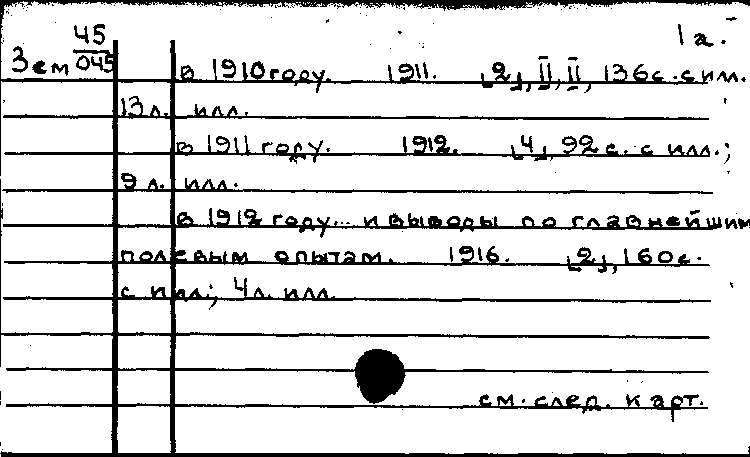 45 1а.
Зем 045
В 1910 году. 1911. [2], II, II, 136 с. с илл.
13 л. илл.
В 1911 году. 1912. [4], 92 с. с илл.;
9 л. илл.
В 1912 году... и выводы по главнейшим
полевым опытам. 1916. [2], 160 с.
с илл.; 4 л. илл.
см. след. карт.